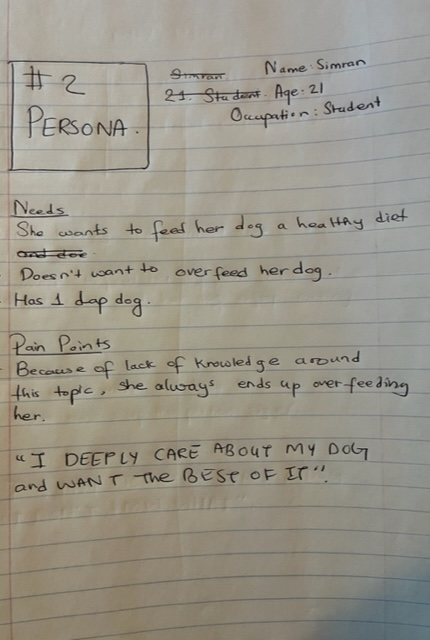 # 2
PERSONA.
Simran Name: Simran
21. Student. Age: 21
Occupation: Student
Needs
She wants to feed her dog a healthy diet
and doe
Doesn't want to overfeed her dog.
Has 1 dap dog.
Pain Points
Because of lack of knowledge around
this topic, she always ends up over feeding
her.
"I DEEPLY CARE ABOUT MY DOG
and WANT The BEST OF IT".